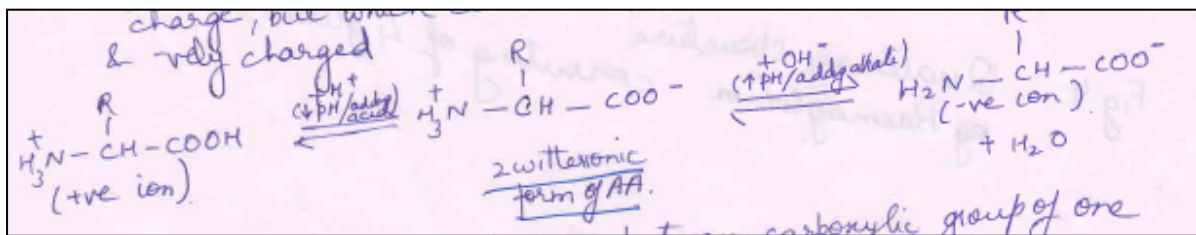 charge, but which
& -vely charged
R
R
R
+ H₃N – CH – COOH
(+ve ion)
H⁺
(↓ pH/addg acid)
+ H₃N – CH – COO⁻
2wittesonic
form of AA.
+ OH⁻
(↑ pH/addg alkali)
H₂N – CH – COO⁻
(-ve ion)
+ H₂O
carboxylic group of one